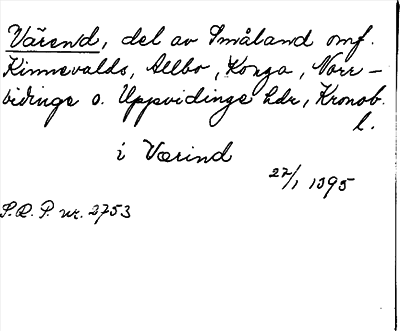 Värend, del av Småland omf.
Kinnevalds, Allbo, Konga, Norr-
vidinge o. Uppvidinge hdr, Kronob.
l.
i Værind
27/1 1395
S.R.P. nr. 2753